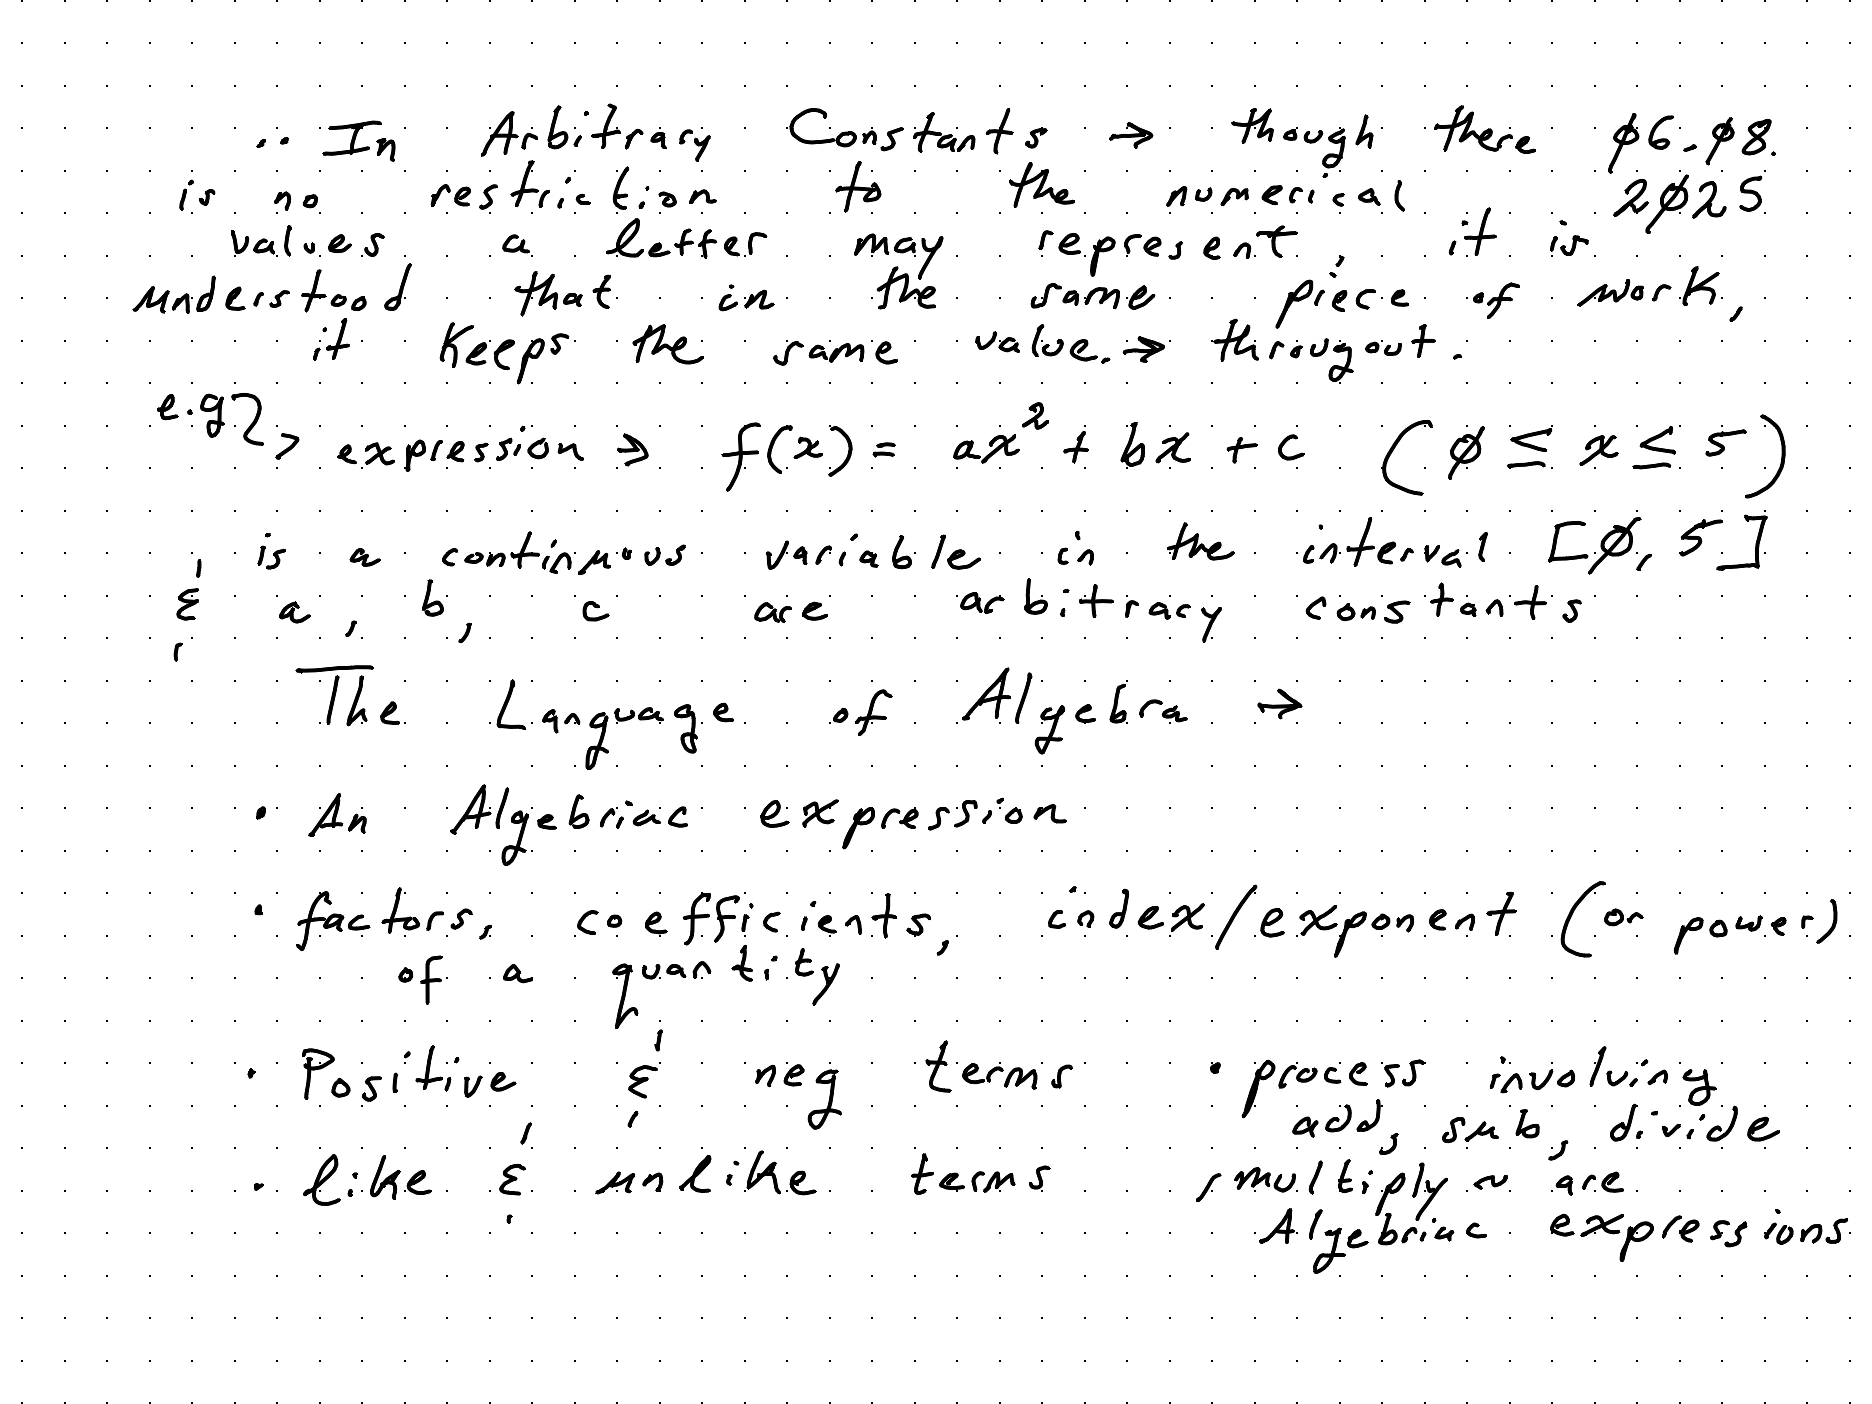 ·· In Arbitrary Constants → though there ø6-ø8.
is no restriction to the numerical 2ø25
values a letter may represent, it is
understood that in the same piece of work,
it keeps the same value. → througout.
e.g → expression → f(x) = ax² + bx + c (ø ≤ x ≤ 5)
is a continuous variable in the interval [ø, 5]
& a, b, c are arbitrary constants
The Language of Algebra →
• An Algebriac expression
• factors, coefficients, index/exponent (or power)
of a quantity
• Positive & neg terms
• like & unlike terms
• process involving
add, sub, divide
, multiply ~ are
Algebriac expressions